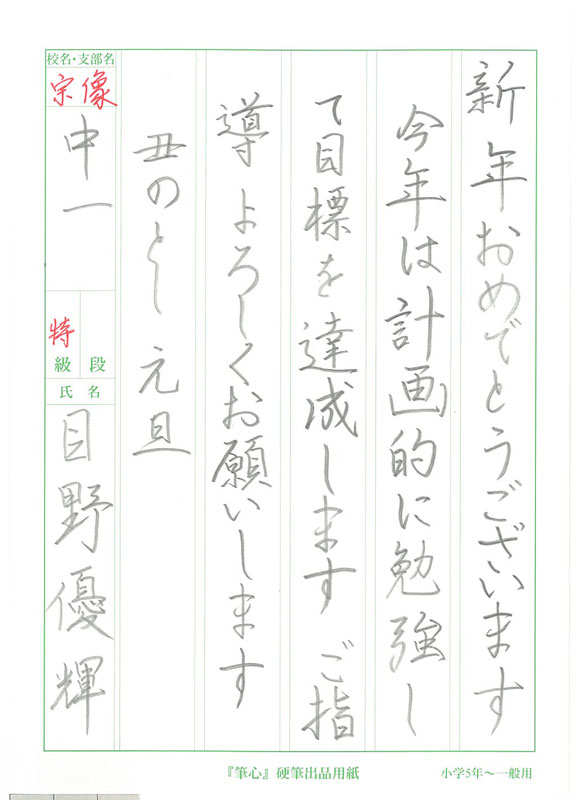 新年おめでとうございます
今年は計画的に勉強し
て目標を達成します ご指
導よろしくお願いします
丑のとし 元旦
校名・支部名
宗像
中一
特
級 段
氏名
目野優輝
『筆心』硬筆出品用紙
小学5年〜一般用